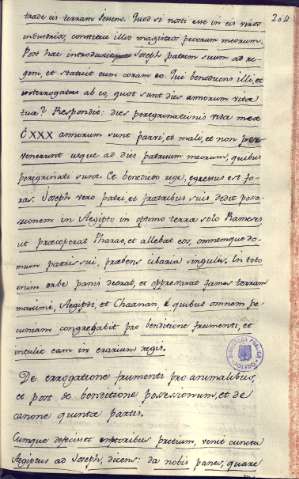 204
trade eis terram Jessen. Quod si nosti esse in eis viros
industrios, constitue illos magistros pecorum meorum.
Post hæc introduxit Joseph patrem suum ad re-
gem, et statuit eum coram eo. Qui benedicens illi, et
interrogatus ab eo, quot sunt dies annorum vitæ
tuæ? Respondit: dies peregrinationis vitæ meæ
CXXX annorum sunt parvi, et mali, et non per-
venerunt usque ad dies patrum meorum, quibus
peregrinati sunt. Et benedicto rege, egressus est fo-
ras. Joseph vero patri et fratribus suis dedit posse-
sionem in Aegipto in optimo terræ solo Ramesses
ut præceperat Pharao, et allebat eos, omnemque do-
mum patris sui, præbens cibaria singulis. In toto
enim orbe panis deerat, et oppresserat fames terram
maxime, Aegipti, et Chanaan, è quibus omnem pe-
cuniam congregabit pro venditione frumenti, et
intulit eam in erarium regis.
De errogatione frumenti pro animalibus,
et post de venditione possesionum, et de
canone quintæ partis.
Cumque defecisset emptoribus pretium, venit cuncta
Aegiptus ad Joseph, dicens: da nobis panes, quare